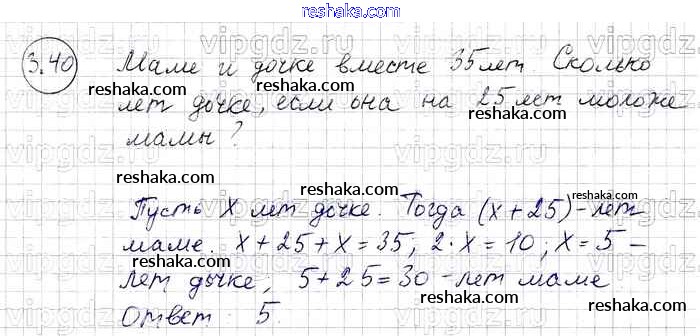 reshaka.com
3.40 Маме и дочке вместе 35 лет. Сколько
лет дочке, если она на 25 лет моложе
мамы?
Пусть x лет дочке. Тогда (x + 25) - лет
маме. x + 25 + x = 35; 2·x = 10; x = 5 -
лет дочке; 5 + 25 = 30 - лет маме
Ответ: 5
reshaka.com
reshaka.com
reshaka.com
reshaka.com
reshaka.com
reshaka.com
reshaka.com
reshaka.com
reshaka.com
reshaka.com
vipgdz.ru
vipgdz.ru
vipgdz.ru